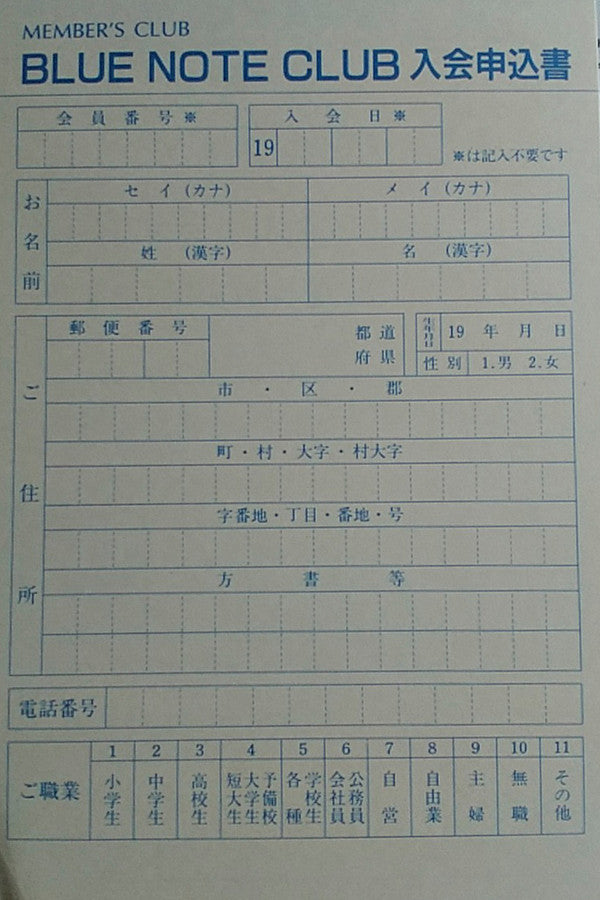 MEMBER'S CLUB
BLUE NOTE CLUB 入会申込書
会員番号※
入会日※
19
※は記入不要です
お名前
セイ(カナ)
メイ(カナ)
姓 (漢字)
名 (漢字)
ご住所
郵便番号
都道
府県
生年月日
19 年 月 日
性別 1.男 2.女
市・区・郡
町・村・大字・村大字
字番地・丁目・番地・号
方書等
電話番号
ご職業
1 小学生
2 中学生
3 高校生
4 予備校 大学生 短大生
5 学校生 各種
6 公務員 会社員
7 自営
8 自由業
9 主婦
10 無職
11 その他